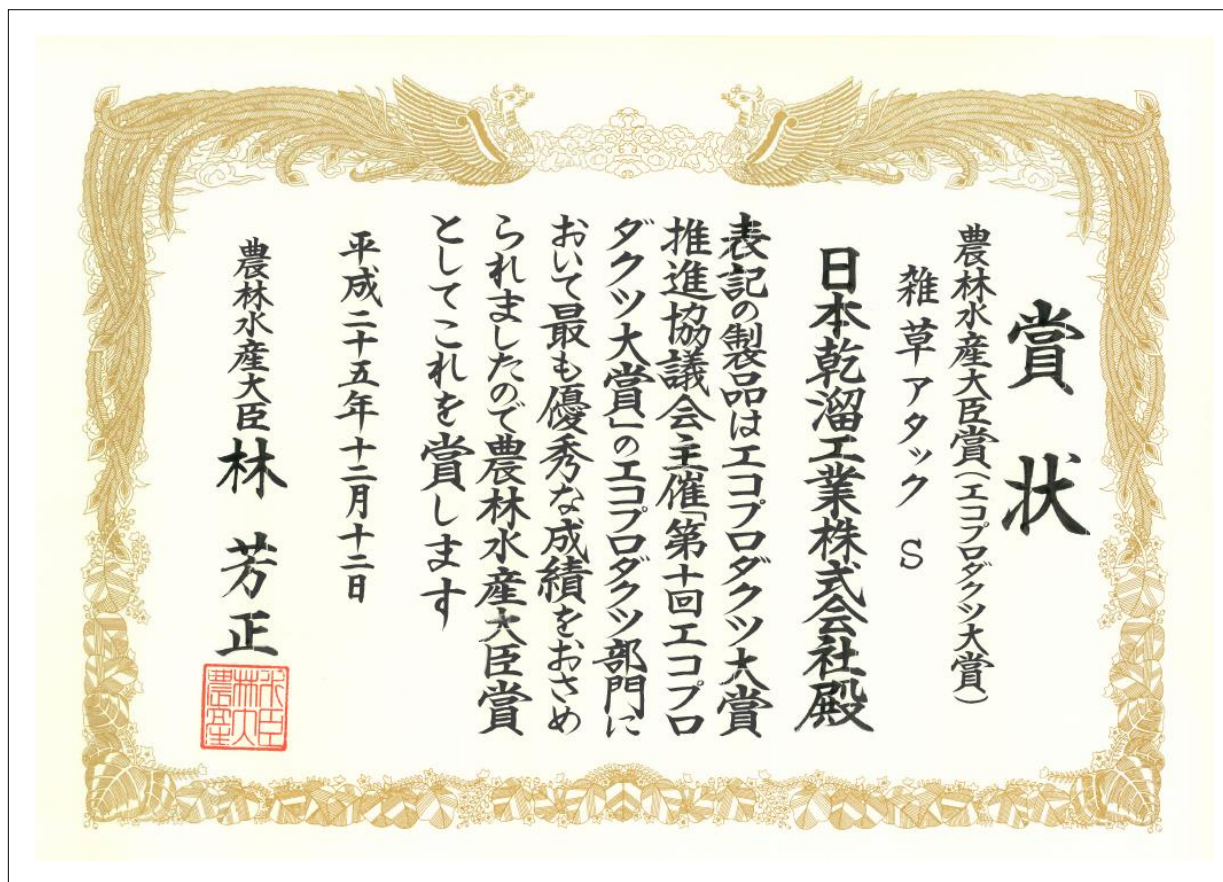 賞状
農林水産大臣賞(エコプロダクツ大賞)
雑草アタックS
日本乾溜工業株式会社殿
表記の製品はエコプロダクツ大賞
推進協議会主催「第十回エコプロ
ダクツ大賞」のエコプロダクツ部門に
おいて最も優秀な成績をおさめ
られましたので農林水産大臣賞
としてこれを賞します
平成二十五年十二月十二日
農林水産大臣 林芳正